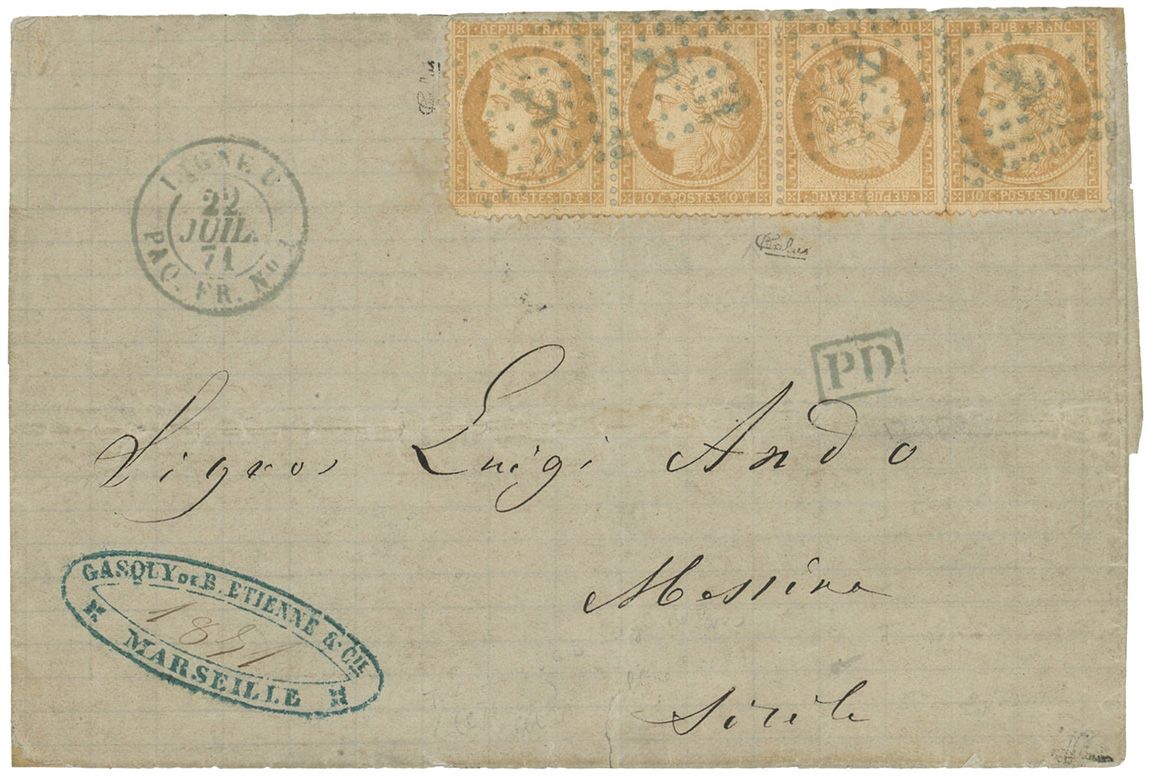 REPUB·FRANC· REPUB·FRANC· 10·POSTES·10 REPUB·FRANC·
10·C·POSTES·10·C· 10·C·POSTES·10·C· REPUB·FRANC· 10·C·POSTES·10·C·
Calves
LIGNE U
22
JUIL.
71
PAQ. FR. No 1
PD
Signor Luigi Ando
Messina
Sicile
GASQUY DE B. ETIENNE & CIE
1871
MARSEILLE